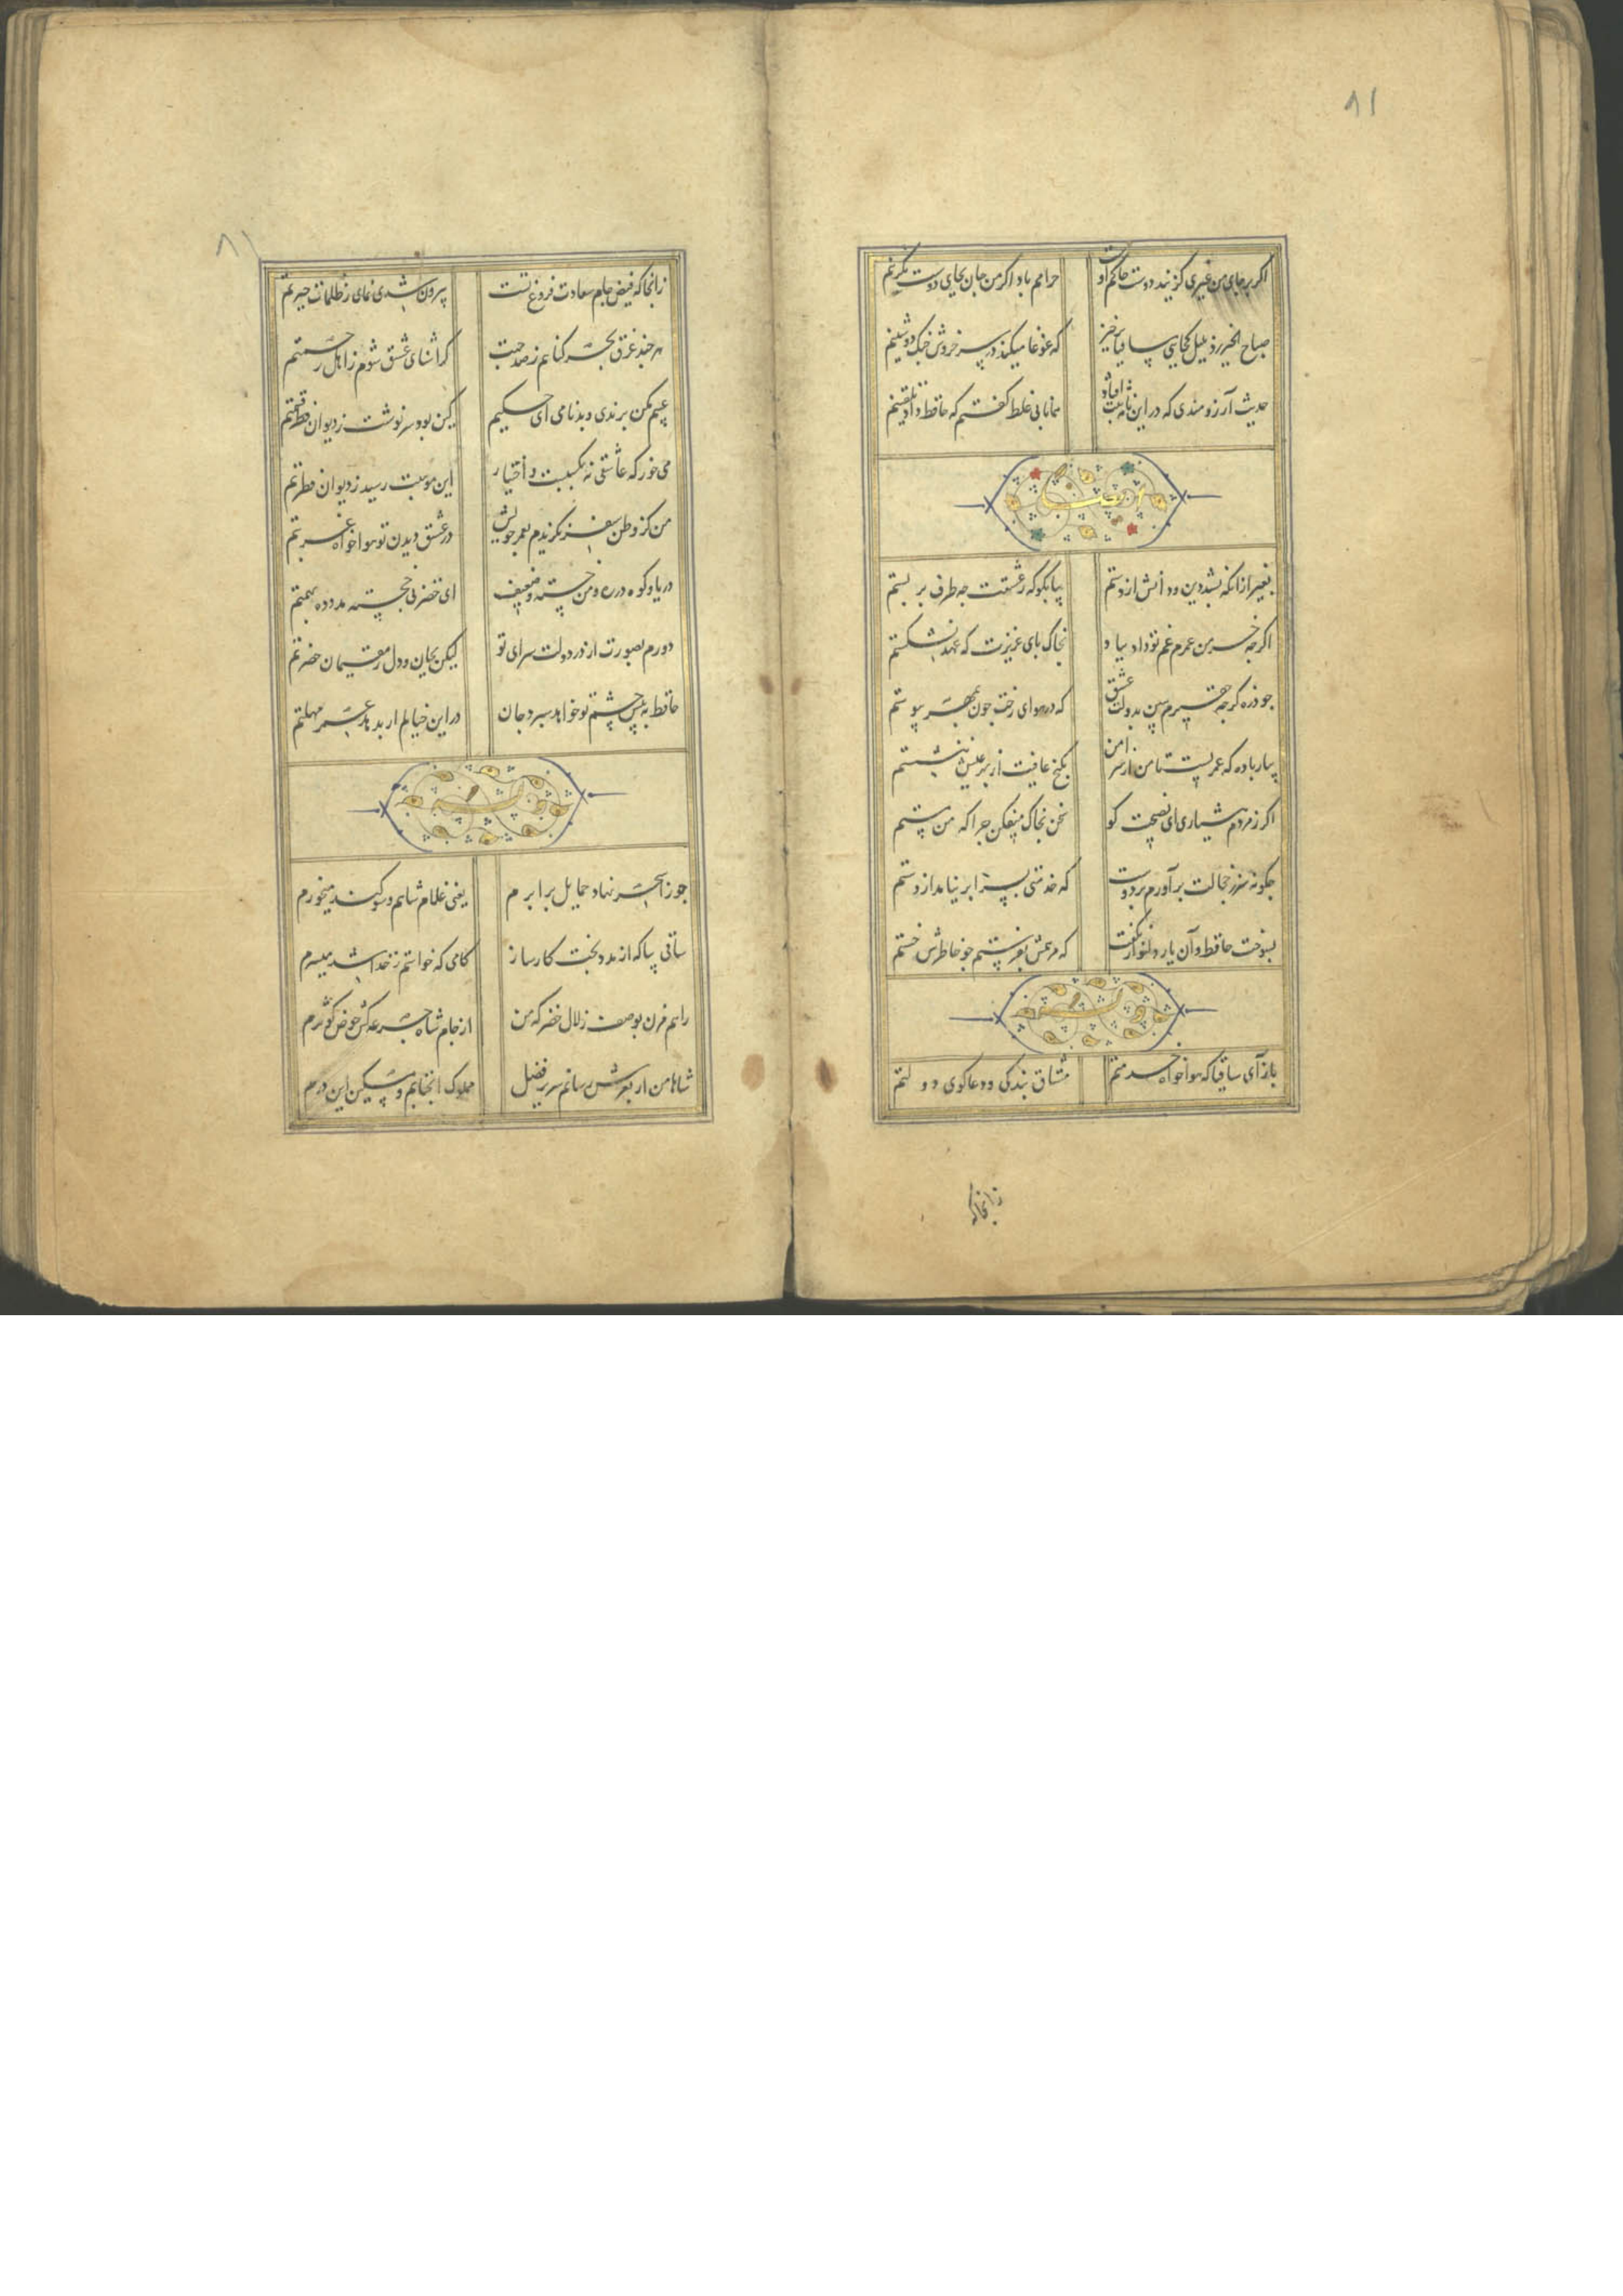 ۸۱
اگر بر جای من غیری گزیند دوست حاکم اوست
حرامم باد اگر من جان بجای دوست بگزینم
صباح الخیر زد بلبل کجایی ساقیا برخیز
که غوغا میکند در سر خروش چنگ دوشینم
حدیث آرزومندی که در این نامه ثبت افتاد
همانا بی غلط گفتم که حافظ داد تلقینم
ایضا
بغیر از آنکه بشد دین و دانش از دستم
بیا بگو که ز عشقت چه طرف بر بستم
اگر چه خرمن عمرم غم تو داد بباد
بخاک پای عزیزت که عهد نشکستم
چو ذره گرچه حقیرم ببین بدولت عشق
که در هوای رخت چون بمهر پیوستم
بیار باده که عمریست تا من از سر امن
بکنج عافیت از بهر عیش ننشستم
اگر ز مردم هشیاری ای نصیحت گو
سخن بخاک میفکن چرا که من مستم
چگونه سر ز خجالت بر آورم بر دوست
که خدمتی بسزا بر نیامد از دستم
بسوخت حافظ و آن یار دلنواز نگفت
که مرهمش بفرستم چو خاطرش خستم
وله
بازآی ساقیا که هواخواه خدمتم
مشتاق بندگی و دعاگوی دولتم
زانجا که
۸۱
زانجا که فیض جام سعادت فروغ تست
بیرون شدی نمای ز ظلمات حیرتم
هر چند غرق بحر گناهم ز صد جهت
گر آشنای عشق شوم ز اهل رحمتم
عیبم مکن برندی و بدنامی ای حکیم
کین بود سرنوشت ز دیوان قسمتم
می خور که عاشقی نه بکسبست و اختیار
این موهبت رسید ز دیوان فطرتم
من کز وطن سفر نگزیدم بعمر خویش
در عشق دیدن تو هواخواه غربتم
دریا و کوه در ره و من خسته و ضعیف
ای خضر پی خجسته مدد ده بهمتم
دورم بصورت از در دولت سرای تو
لیکن بجان و دل ز مقیمان حضرتم
حافظ به پیش چشم تو خواهد سپرد جان
در این خیالم ار بدهد عمر مهلتم
وله
جوزا سحر نهاد حمایل برابرم
یعنی غلام شاهم و سوگند میخورم
ساقی بیا که از مدد بخت کارساز
کامی که خواستم ز خدا شد میسرم
راهم مزن بوصف زلال خضر که من
از جام شاه جرعه کش حوض کوثرم
شاها من ار بعرش رسانم سریر فضل
مملوک آنجنابم و مسکین این درم